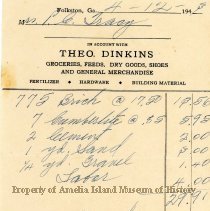 Folkston, Ga. 4-12- 194
M rs. P. C. Tracy
IN ACCOUNT WITH
THEO. DINKINS
GROCERIES, FEEDS, DRY GOODS, SHOES
AND GENERAL MERCHANDISE
FERTILIZER • HARDWARE • BUILDING MATERIAL
775 Brick @ 17.50
7 @ .85 5.95
2 Cement
1 yd. Sand
1/4 yd. Gravel 1.00
Labor 4.00
29.91
Property of Amelia Island Museum of History